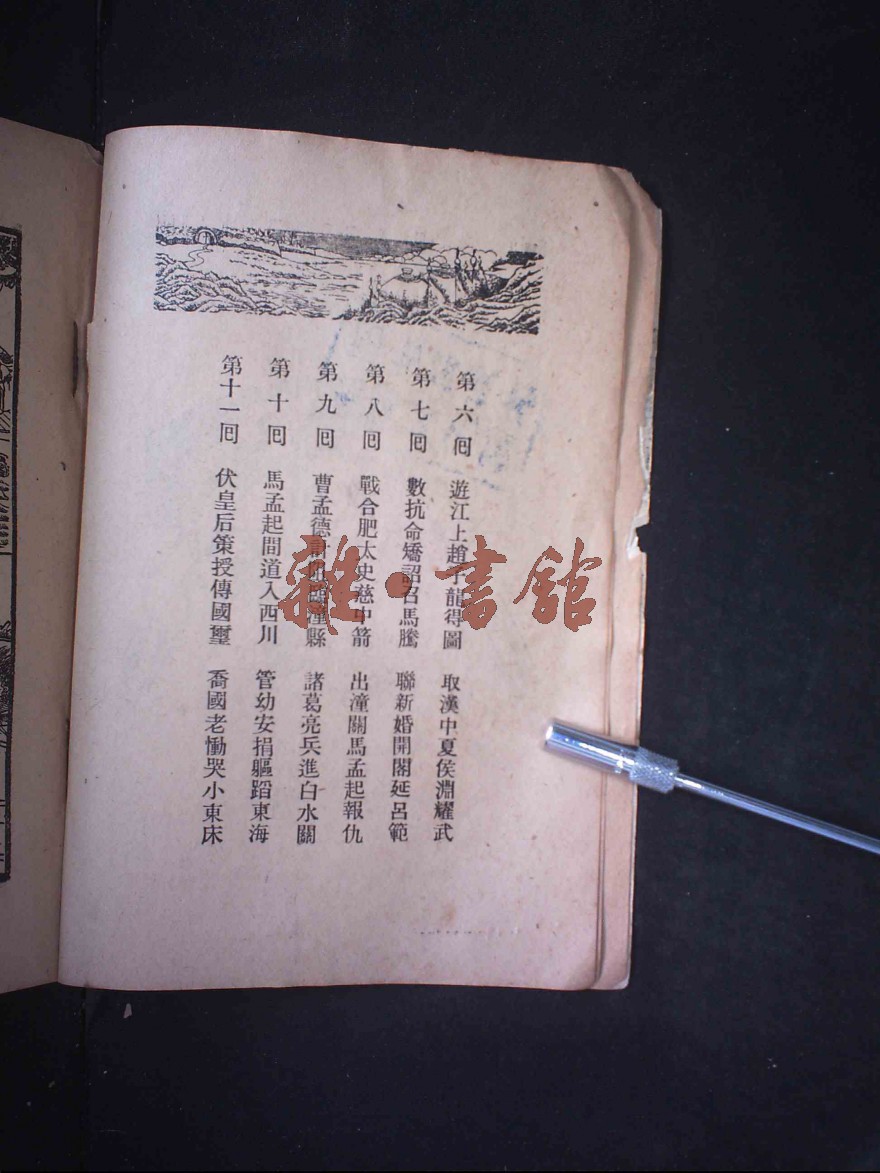 第六囘 遊江上趙子龍得圖 取漢中夏侯淵耀武
第七囘 數抗命矯詔召馬騰 聯新婚開閣延呂範
第八囘 戰合肥太史慈中箭 出潼關馬孟起報仇
第九囘 曹孟德計 潼縣 諸葛亮兵進白水關
第十囘 馬孟起間道入西川 管幼安捐軀蹈東海
第十一囘 伏皇后策授傳國璽 喬國老慟哭小東床
雜·書館